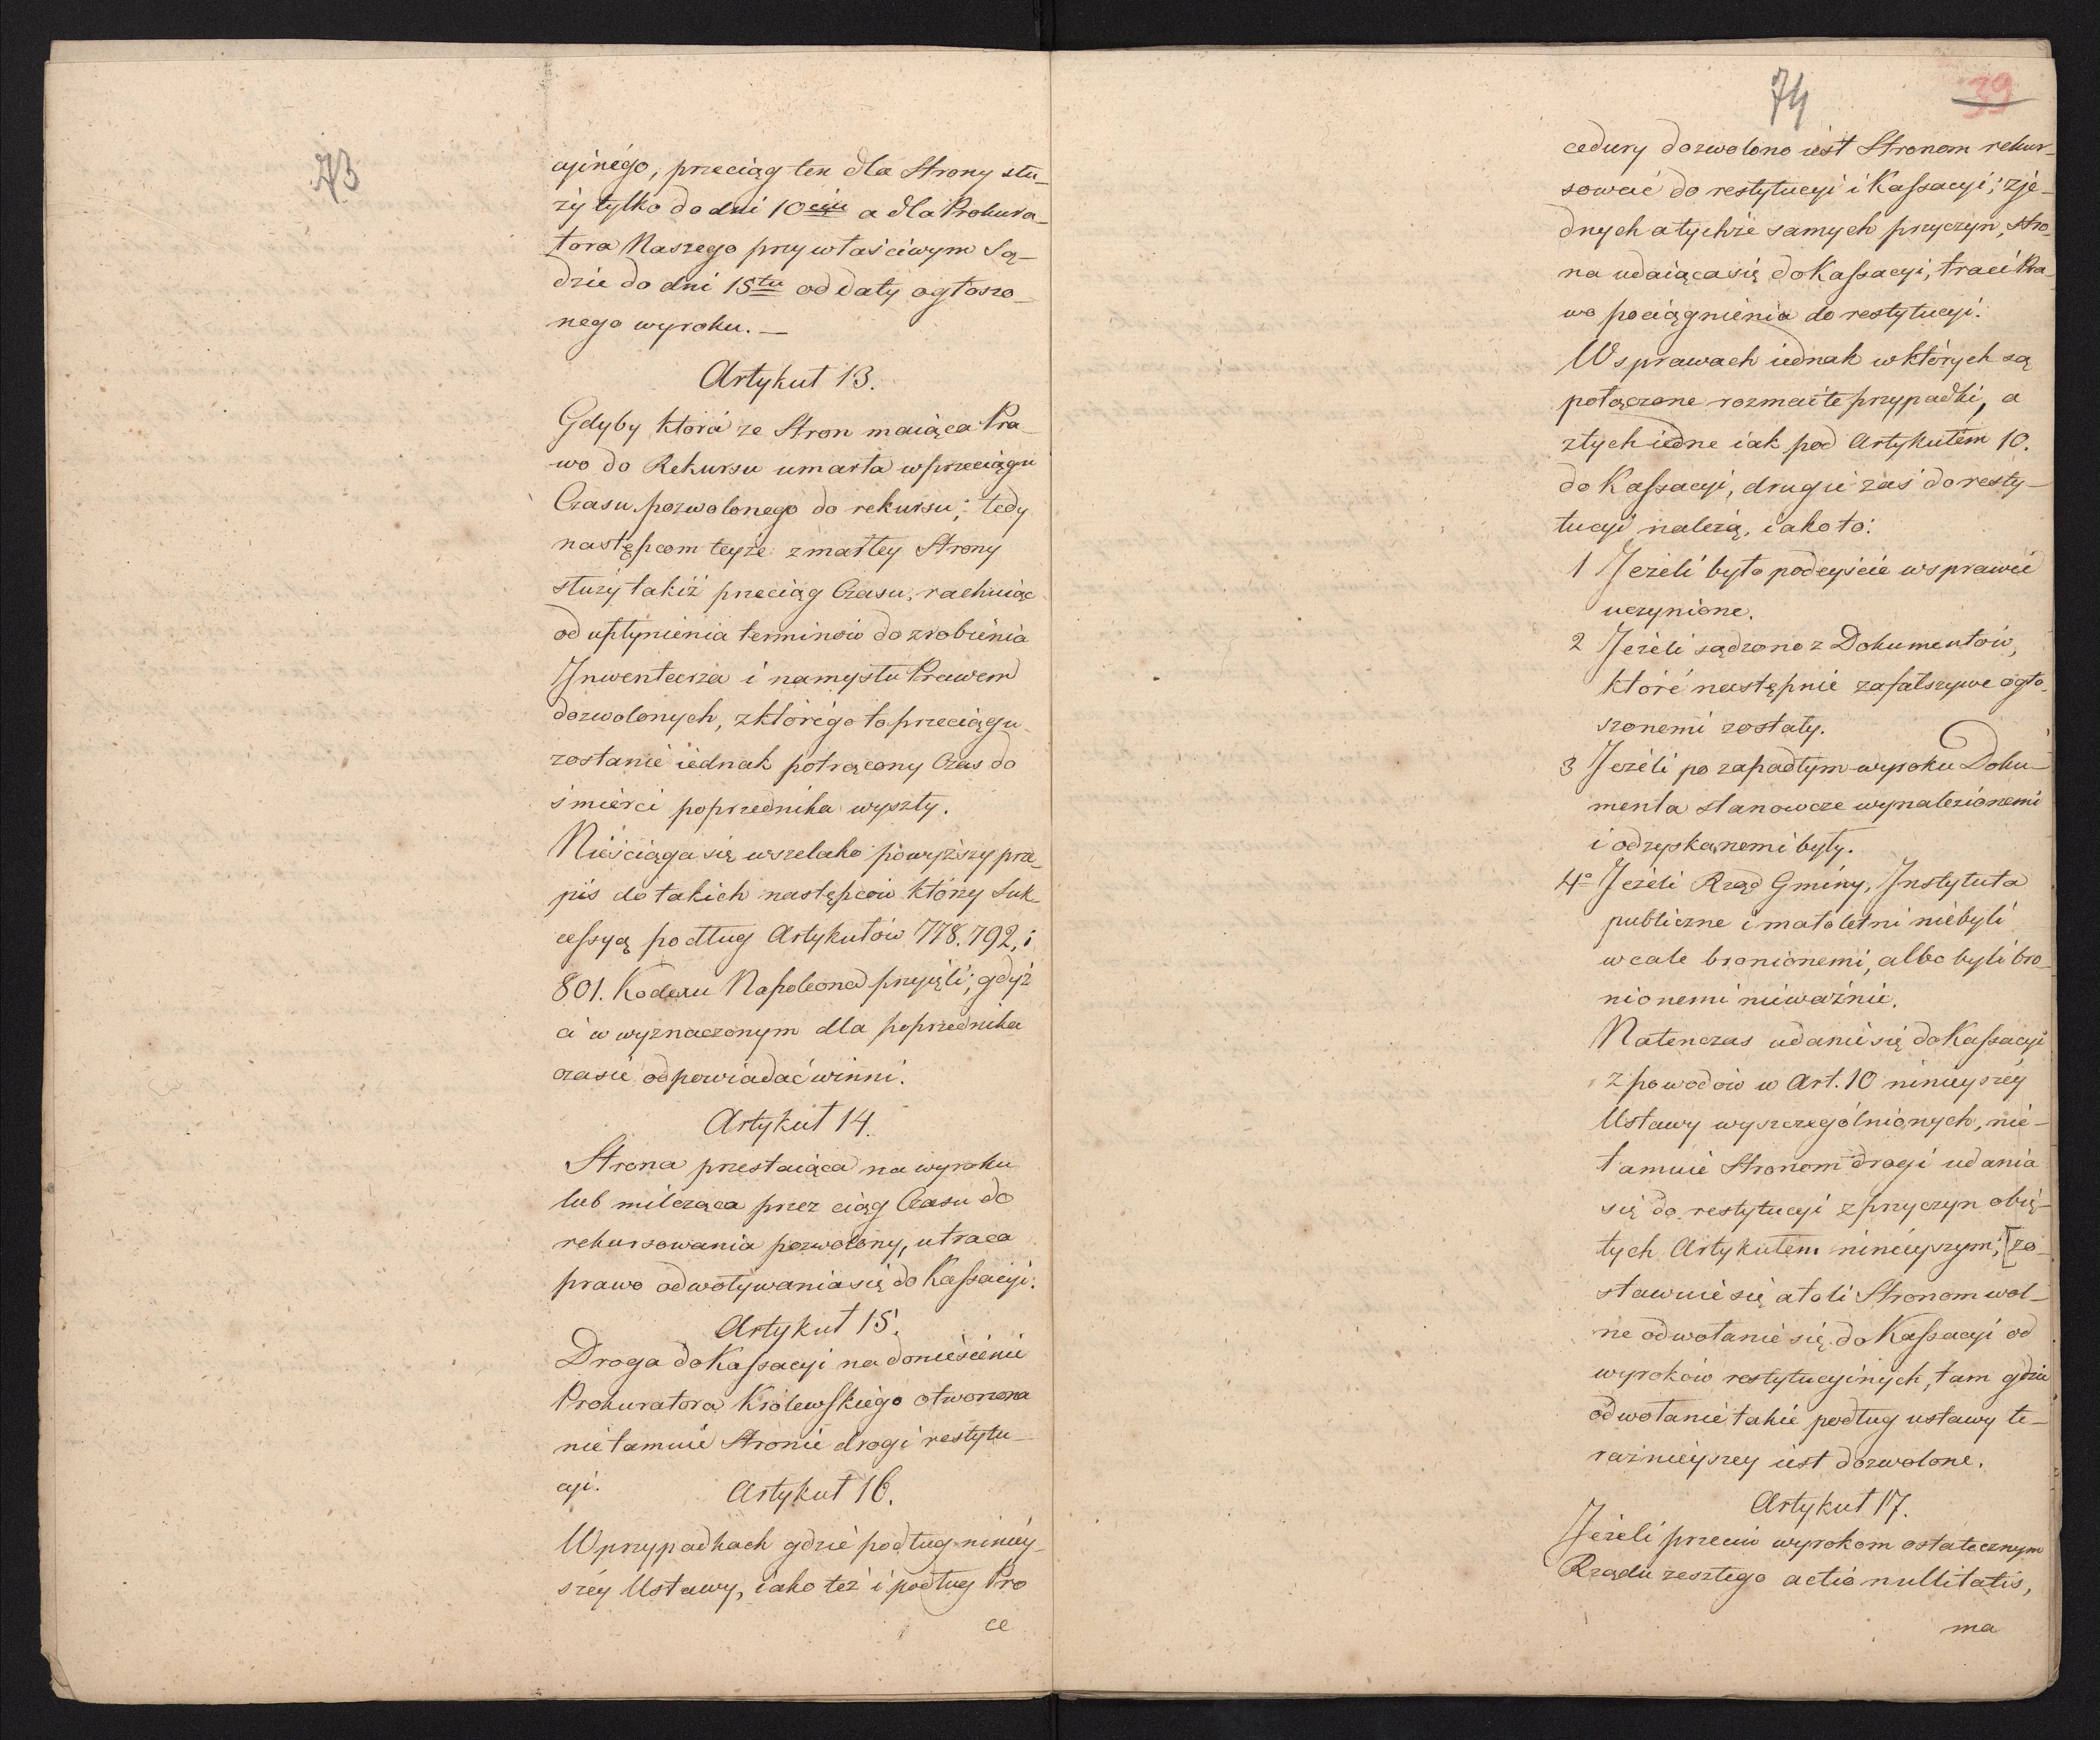 73
cyinégo, przeciąg ten dla Strony słu_
ży tylko do dni 10ciu a dla Prokura_
tora Naszego przy właściwym Są_
dzie do dni 15tu od daty ogłoszo_
nego wyroku. _
Artykuł 13.
Gdyby która ze Stron maiąca Pra_
wo do Rekursu umarła w przeciągu
Czasu pozwolonego do rekursu; tedy
następcom teyże zmarłey Strony
służy takiż przeciąg Czasu, rachuiąc
od upłynienia terminów do zrobienia
Inwentarza i namysłu Prawem
dozwolonych, z którégo to przeciągu
zostanie iednak potrącony Czas do
śmierci poprzednika wyszły.
Nieściąga się wszelako powyższy prze_
pis do takich następców którzy Suk_
cessyą podług Artykułów 778. 792, i
801. Kodexu Napoleona przyięli; gdyż
ci w wyznaczonym dla poprzednika
czasie odpowiadać winni.
Artykuł 14.
Strona przestaiąca na wyroku
lub milcząca przez ciąg Czasu do
rekursowania pozwolony, utraca
prawo odwoływania się do Kassacyi.
Artykuł 15.
Droga do Kassacyi na doniesienie
Prokuratora Królewskiégo otworzona
nie tamuie Stronie drogi restytu_
cyi.
Artykuł 16.
W przypadkach gdzie podług niniey_
széy Ustawy, iako też i podług Pro
ce
74
39
cedury dozwolono iest Stronom rekur_
sować do restytucyi i Kassacyi; z je_
dnych a tychże samych przyczyn, Stro_
na udaiąca się do Kassacyi, traci Pra_
wo pociągnienia do restytucyi.
W sprawach iednak w których są
połączone rozmaite przypadki, a
z tych iedne iak pod Artykułem 10.
do Kassacyi, drugie zaś do resty_
tucyi należą, iako to:
1 Jeżeli było podeyście w sprawie
uczynione.
2 Jeżeli sądzono z Dokumentów,
któré następnie za fałszywe ogło_
szonemi zostały.
3 Jeżeli po zapadłym wyroku Doku_
menta stanowcze wynalezionemi
i odzyskanemi były.
4o Jeżeli Rząd Gminy, Instytuta
publiczne i małoletni niebyli
wcale bronionemi, albo byli bro_
nionemi nieważnie.
Natenczas udanie się do Kassacyi
z powodów w Art. 10 ninieyszéy
Ustawy wyszczególnionych, nie_
tamuie Stronom drogi udania
się do restytucyi z przyczyn obię_
tych Artykułem ninieyszym; [zo_
stawuie się atoli Stronom wol_
ne odwołanie się do Kassacyi od
wyroków restytucyinych, tam gdzie
odwołanie takie podług ustawy te_
raźnieyszey iest dozwolone.
Artykuł 17.
Jeżeli przeciw wyrokom ostatecznym
Rządu zeszłego actio nullitatis,
ma